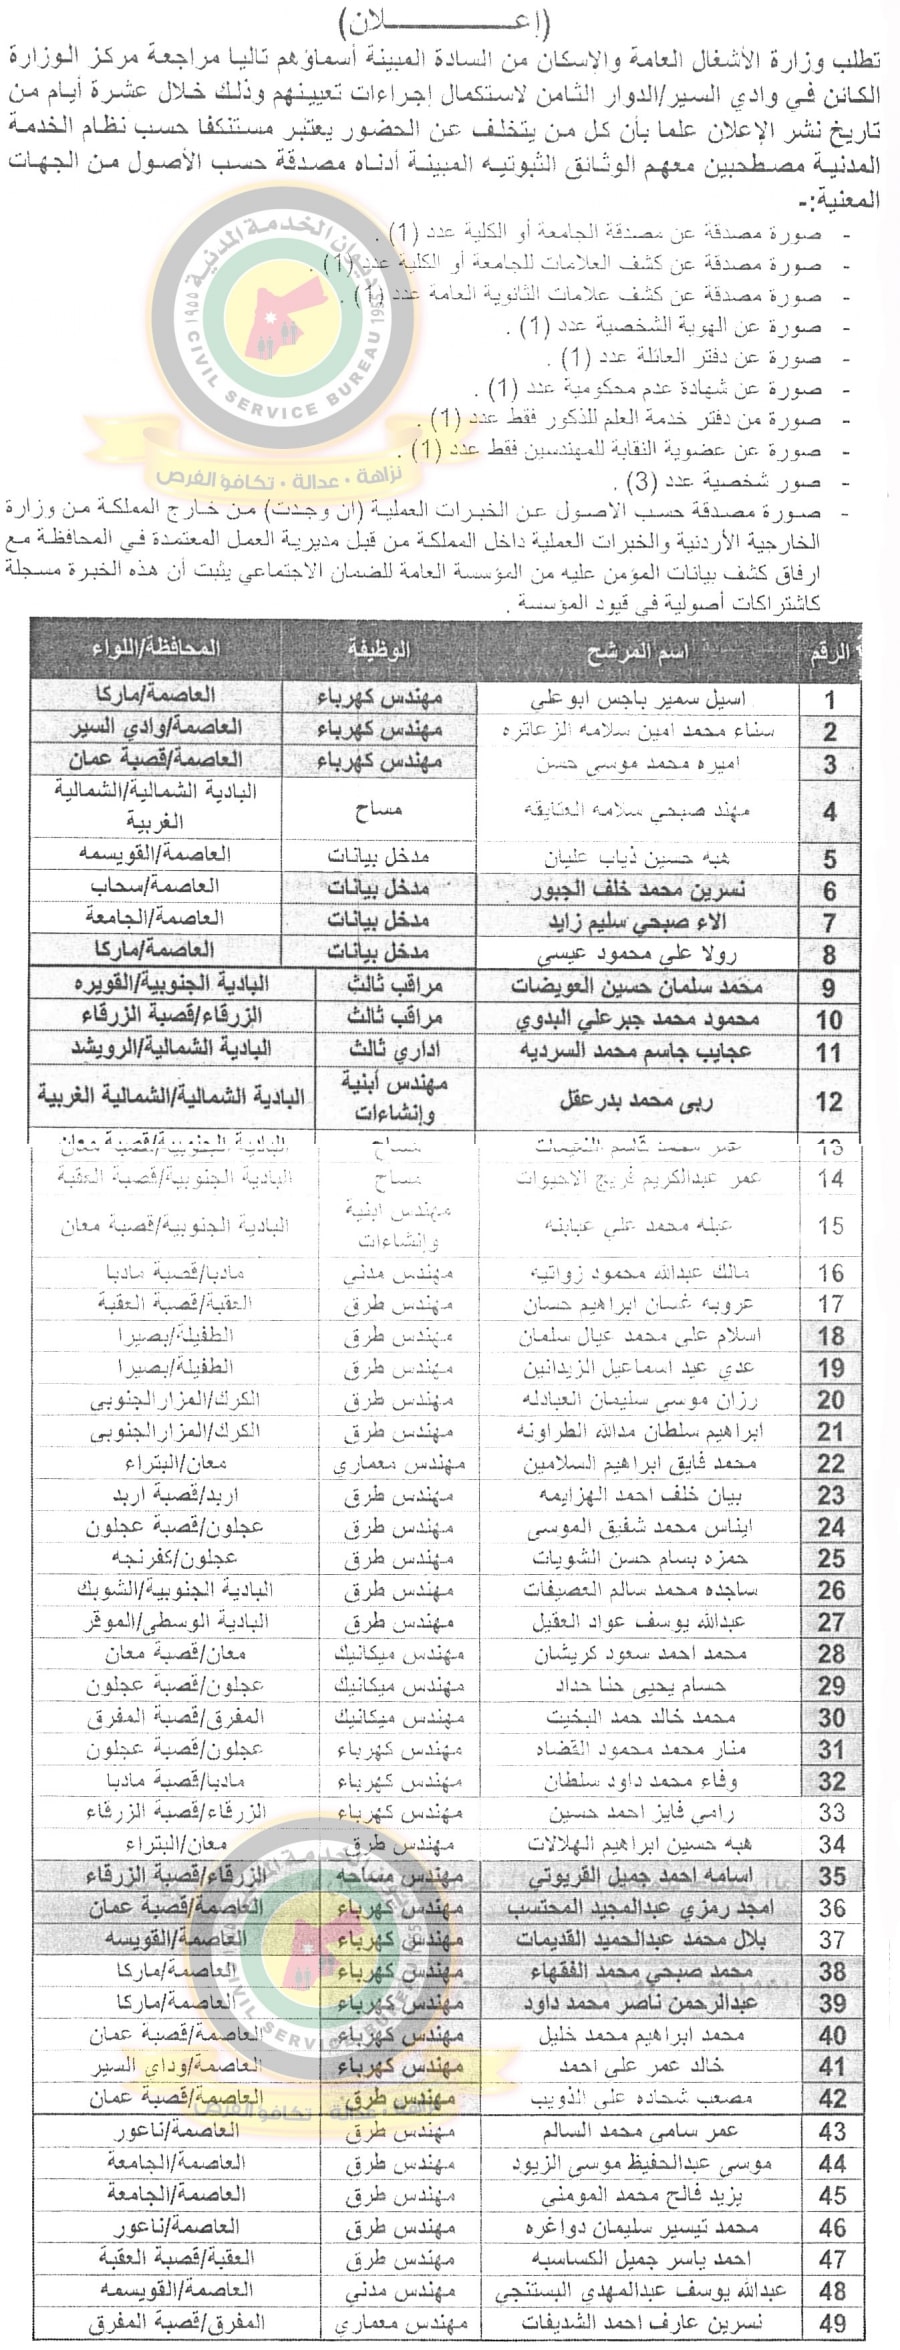 (إعـــــــــلان)
تطلب وزارة الأشغال العامة والإسكان من السادة المبينة أسماؤهم تاليا مراجعة مركز الوزارة
الكائن في وادي السير/الدوار الثامن لاستكمال إجراءات تعيينهم وذلك خلال عشرة أيام من
تاريخ نشر الإعلان علما بأن كل من يتخلف عن الحضور يعتبر مستنكفا حسب نظام الخدمة
المدنية مصطحبين معهم الوثائق الثبوتيه المبينة أدناه مصدقة حسب الأصول من الجهات
المعنية:-
- صورة مصدقة عن مصدقة الجامعة أو الكلية عدد (1) .
- صورة مصدقة عن كشف العلامات للجامعة أو الكلية عدد (1) .
- صورة مصدقة عن كشف علامات الثانوية العامة عدد (1) .
- صورة عن الهوية الشخصية عدد (1) .
- صورة عن دفتر العائلة عدد (1) .
- صورة عن شهادة عدم محكومية عدد (1) .
- صورة من دفتر خدمة العلم للذكور فقط عدد (1) .
- صورة عن عضوية النقابة للمهندسين فقط عدد (1) .
- صور شخصية عدد (3) .
- صورة مصدقة حسب الاصول عن الخبرات العملية (ان وجدت) من خارج المملكة من وزارة
الخارجية الأردنية والخبرات العملية داخل المملكة من قبل مديرية العمل المعتمدة في المحافظة مع
ارفاق كشف بيانات المؤمن عليه من المؤسسة العامة للضمان الاجتماعي يثبت أن هذه الخبرة مسجلة
كاشتراكات أصولية في قيود المؤسسة .
ديوان الخدمة المدنية
١٩٥٥ CIVIL SERVICE BUREAU 1955
نزاهة • عدالة • تكافؤ الفرص
الرقم اسم المرشح الوظيفة المحافظة/اللواء
1 اسيل سمير باجس ابوعلي مهندس كهرباء العاصمة/ماركا
2 سناء محمد امين سلامه الزعاتره مهندس كهرباء العاصمة/وادي السير
3 اميره محمد موسى حسن مهندس كهرباء العاصمة/قصبة عمان
4 مهند صبحي سلامه العتايقه مساح البادية الشمالية/الشمالية
الغربية
5 هبه حسين ذياب عليان مدخل بيانات العاصمة/القويسمه
6 نسرين محمد خلف الجبور مدخل بيانات العاصمة/سحاب
7 الاء صبحي سليم زايد مدخل بيانات العاصمة/الجامعة
8 رولا علي محمود عيسى مدخل بيانات العاصمة/ماركا
9 محمد سلمان حسين العويضات مراقب ثالث البادية الجنوبية/القويره
10 محمود محمد جبرعلي البدوي مراقب ثالث الزرقاء/قصبة الزرقاء
11 عجايب جاسم محمد السرديه اداري ثالث البادية الشمالية/الرويشد
12 ربى محمد بدرعقل مهندس أبنية
وإنشاءات البادية الشمالية/الشمالية الغربية
13 عمر محمد قاسم النعيمات مساح البادية الجنوبية/قصبة معان
14 عمر عبدالكريم فريج الاحيوات مساح البادية الجنوبية/قصبة العقبة
15 عبله محمد علي عبابنه مهندس أبنية
وإنشاءات البادية الجنوبية/قصبة معان
16 مالك عبدالله محمود زواتيه مهندس مدني مادبا/قصبة مادبا
17 عروبه غسان ابراهيم حسان مهندس طرق العقبة/قصبة العقبة
18 اسلام على محمد عيال سلمان مهندس طرق الطفيلة/بصيرا
19 عدي عيد اسماعيل الزيدانين مهندس طرق الطفيلة/بصيرا
20 رزان موسى سليمان العبادله مهندس طرق الكرك/المزارالجنوبي
21 ابراهيم سلطان مدالله الطراونه مهندس طرق الكرك/المزارالجنوبي
22 محمد فايق ابراهيم السلامين مهندس معماري معان/البتراء
23 بيان خلف احمد الهزايمه مهندس طرق اربد/قصبة اربد
24 ايناس محمد شفيق الموسى مهندس طرق عجلون/قصبة عجلون
25 حمزه بسام حسن الشويات مهندس طرق عجلون/كفرنجه
26 ساجده محمد سالم العصيفات مهندس طرق البادية الجنوبية/الشوبك
27 عبدالله يوسف عواد العقيل مهندس طرق البادية الوسطى/الموقر
28 محمد احمد سعود كريشان مهندس ميكانيك معان/قصبة معان
29 حسام يحيى حنا حداد مهندس ميكانيك عجلون/قصبة عجلون
30 محمد خالد حمد البخيت مهندس ميكانيك المفرق/قصبة المفرق
31 منار محمد محمود القضاه مهندس كهرباء عجلون/قصبة عجلون
32 وفاء محمد داود سلطان مهندس كهرباء مادبا/قصبة مادبا
33 رامي فايز احمد حسين مهندس كهرباء الزرقاء/قصبة الزرقاء
34 هبه حسين ابراهيم الهلالات مهندس طرق معان/البتراء
35 اسامه احمد جميل القريوتي مهندس مساحه الزرقاء/قصبة الزرقاء
36 امجد رمزي عبدالمجيد المحتسب مهندس كهرباء العاصمة/قصبة عمان
37 بلال محمد عبدالحميد القديمات مهندس كهرباء العاصمة/القويسه
38 محمد صبحي محمد الفقهاء مهندس كهرباء العاصمة/ماركا
39 عبدالرحمن ناصر محمد داود مهندس كهرباء العاصمة/ماركا
40 محمد ابراهيم محمد خليل مهندس كهرباء العاصمة/قصبة عمان
41 خالد عمر على احمد مهندس كهرباء العاصمة/وداي السير
42 مصعب شحاده على الذويب مهندس طرق العاصمة/قصبة عمان
43 عمر سامى محمد السالم مهندس طرق العاصمة/ناعور
44 موسى عبدالحفيظ موسى الزيود مهندس طرق العاصمة/الجامعة
45 يزيد فالح محمد المومني مهندس طرق العاصمة/الجامعة
46 محمد تيسير سليمان دواغره مهندس طرق العاصمة/ناعور
47 احمد ياسر جميل الكساسبه مهندس طرق العقبة/قصبة العقبة
48 عبدالله يوسف عبدالمهدي البستنجي مهندس مدني العاصمة/القويسمه
49 نسرين عارف احمد الشديفات مهندس معماري المفرق/قصبة المفرق